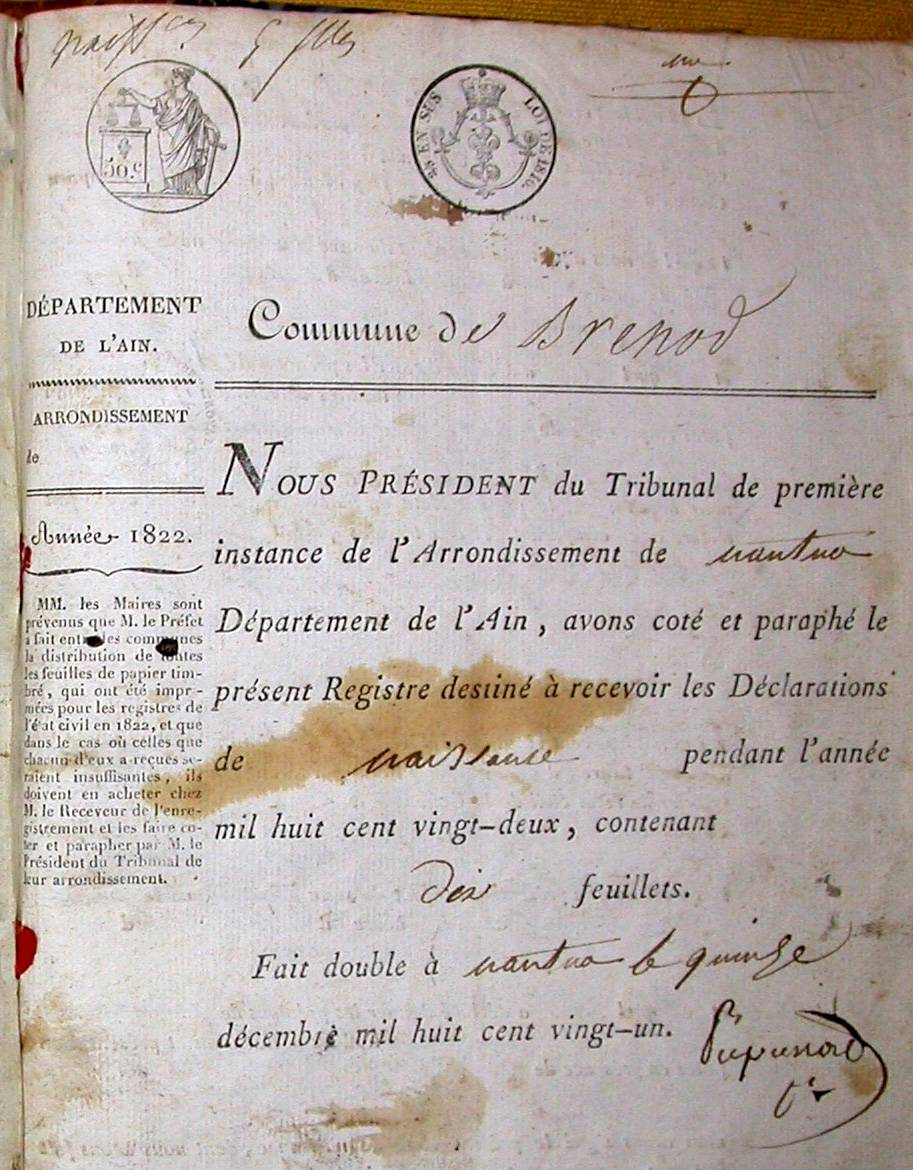 50.c
25 EN SUS
LOI DE 1816.
DÉPARTEMENT
DE L'AIN.
ARRONDISSEMENT
de
Année 1822.
MM. les Maires sont
prévenus que M. le Préfet
a fait entre les communes
la distribution de toutes
les feuilles de papier tim-
bré, qui ont été impri-
mées pour les registres de
l'état civil en 1822, et que
dans le cas où celles que
chacun d'eux a reçues se-
raient insuffisantes, ils
doivent en acheter chez
M. le Receveur de l'enre-
gistrement et les faire co-
ter et parapher par M. le
Président du Tribunal de
leur arrondissement.
Commune de Brenod
NOUS PRÉSIDENT du Tribunal de première
instance de l'Arrondissement de nantua
Département de l'Ain, avons coté et paraphé le
présent Registre destiné à recevoir les Déclarations
de naissance pendant l'année
mil huit cent vingt-deux, contenant
dix feuillets.
Fait double à nantua le quinze
décembre mil huit cent vingt-un.